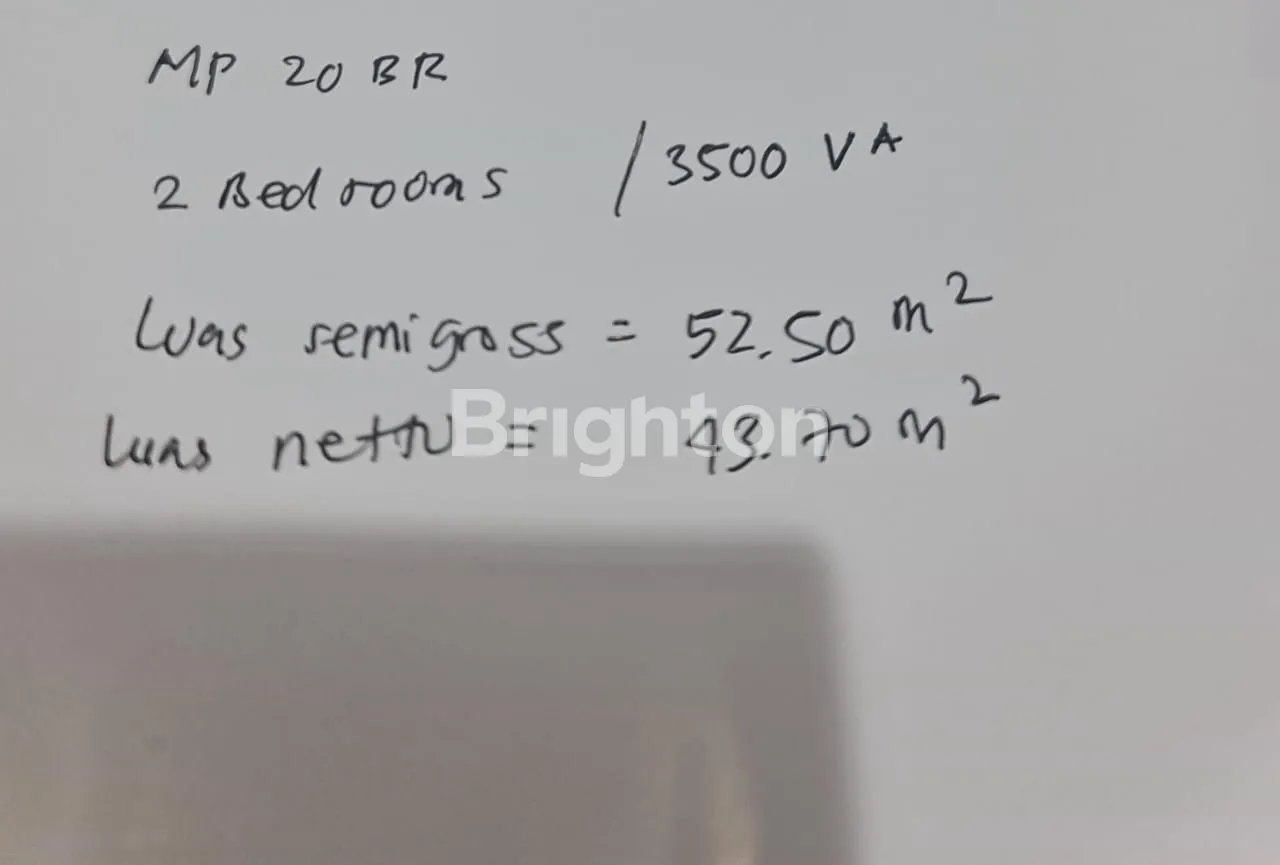 MP 20 BR
2 Bedrooms / 3500 VA
Luas semigross = 52.50 m²
Luas netto = 43.70 m²
Brighton